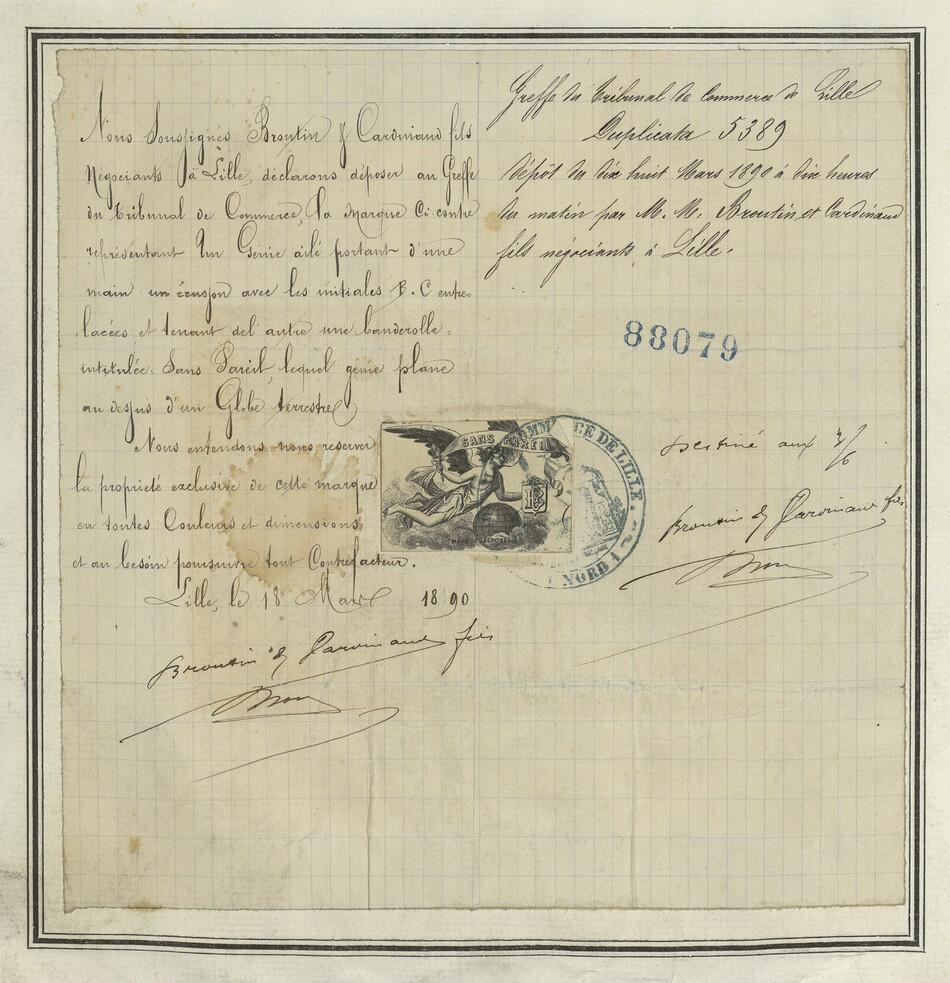 Nous Soussignés Broutin & Cardinaud fils
Négociants à Lille, déclarons déposer au Greffe
du Tribunal de Commerce, la Marque Ci-contre
représentant Un Génie ailé portant d'une
main un écusson avec les initiales B.C entre-
lacées et tenant de l'autre une banderolle-
intitulée: Sans Pareil, lequel génie plane
au dessus d'un Globe terrestre
Nous entendons nous réserver
la propriété exclusive de cette marque
en toutes Couleurs et dimensions
et au besoin poursuivre tout Contrefacteur.
Lille, le 18 Mars 1890
Broutin & Cardinaud fils
SANS PAREIL
BC
COMMERCE DE LILLE.
NORD
Greffe du Tribunal de Commerce de Lille
Duplicata 5389
Dépôt du dix huit Mars 1890 à dix heures
du matin par M. M. Broutin et Cardinaud
fils négociants à Lille.
88079
Destiné aux 3/6
Broutin & Cardinaud fils